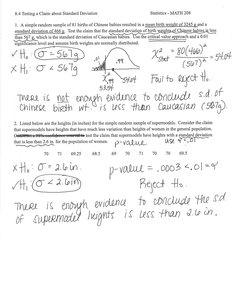 8.4 Testing a Claim about Standard Deviation Statistics - MATH 208
1. A simple random sample of 81 births of Chinese babies resulted in a mean birth weight of 3245 g and a
standard deviation of 466 g. Test the claim that the standard deviation of birth weights of Chinese babies is less
than 567 g, which is the standard deviation of Caucasian babies. Use the critical value approach and a 0.01
significance level and assume birth weights are normally distributed.
✓ H₀ σ = 567g
x H₁ σ < 567g
.99
.01
53.54 54.04
χ² stat = 80(466)² / (567)² = 54.04
Fail to reject H₀
There is not enough evidence to conclude s.d. of
Chinese birth wt. is less than Caucasian (567g).
2. Listed below are the heights (in inches) for the simple random sample of supermodels. Consider the claim
that supermodels have heights that have much less variation than heights of women in the general population.
test the claim that supermodels have heights with a standard deviation
that is less than 2.6 in. for the population of women. p-value use α=.01
70 71 69.25 68.5 69 70 71 70 70 69.5
x H₀: σ = 2.6in.
✓ H₁: σ < 2.6in
p-value = .0003 < .01 = α
Reject H₀.
There is enough evidence to conclude the sd
of supermodel heights is less than 2.6 in.